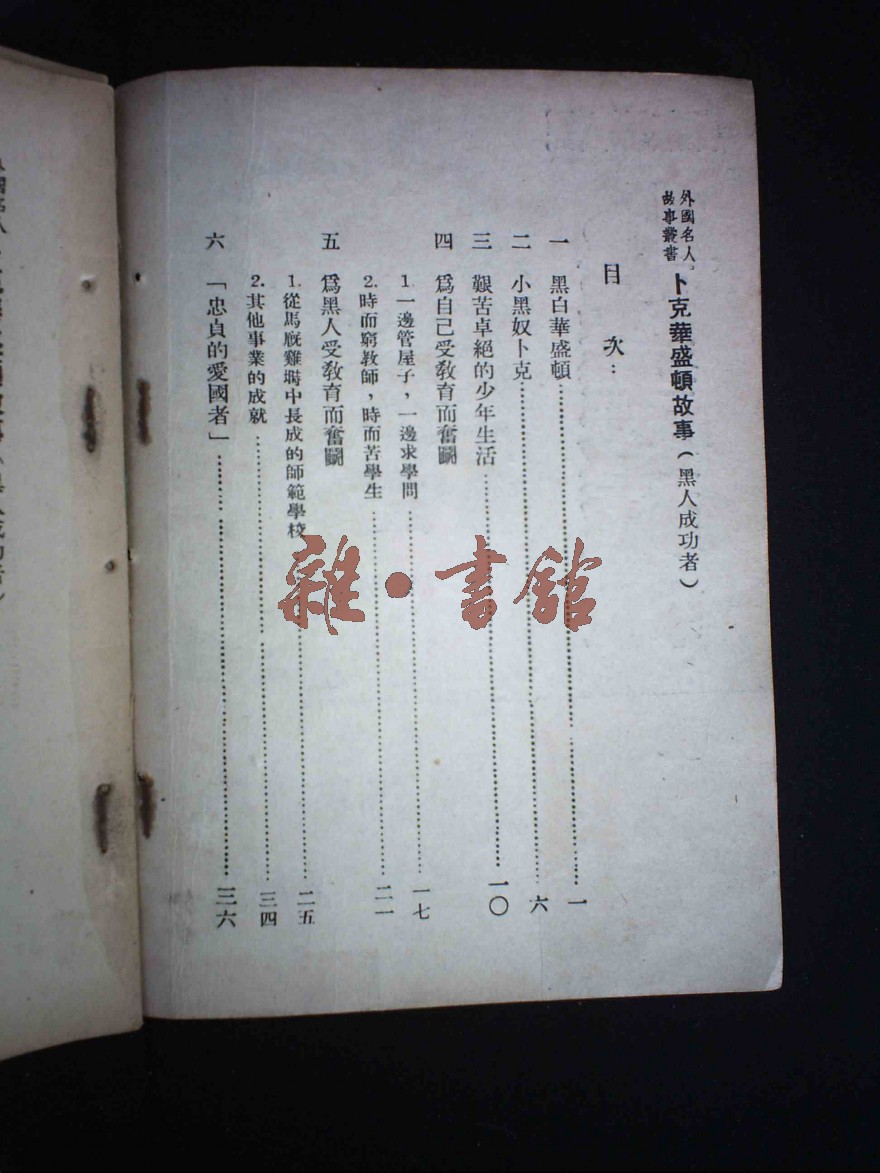 外國名人
故事叢書
卜克華盛頓故事(黑人成功者)
目次：
一 黑白華盛頓……一
二 小黑奴卜克……六
三 艱苦卓絕的少年生活……一〇
四 爲自己受敎育而奮鬭
1 一邊管屋子，一邊求學問……一七
2. 時而窮敎師，時而苦學生……二一
五 爲黑人受敎育而奮鬭
1. 從馬厩雞塒中長成的師範學校……二五
2. 其他事業的成就……三四
六 「忠貞的愛國者」……三六
雜·書館